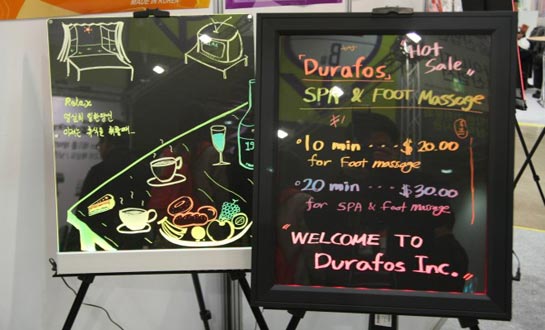 MADE IN KOREA
Relax
열심히 일한 당신
이제는 휴식을 취할 때...
19
Hot
Sale
「Durafos」
SPA & FOOT Massage
10 min ... $20.00
for Foot massage
20 min ... $30.00
for SPA & foot massage
"WELCOME TO
Durafos Inc."